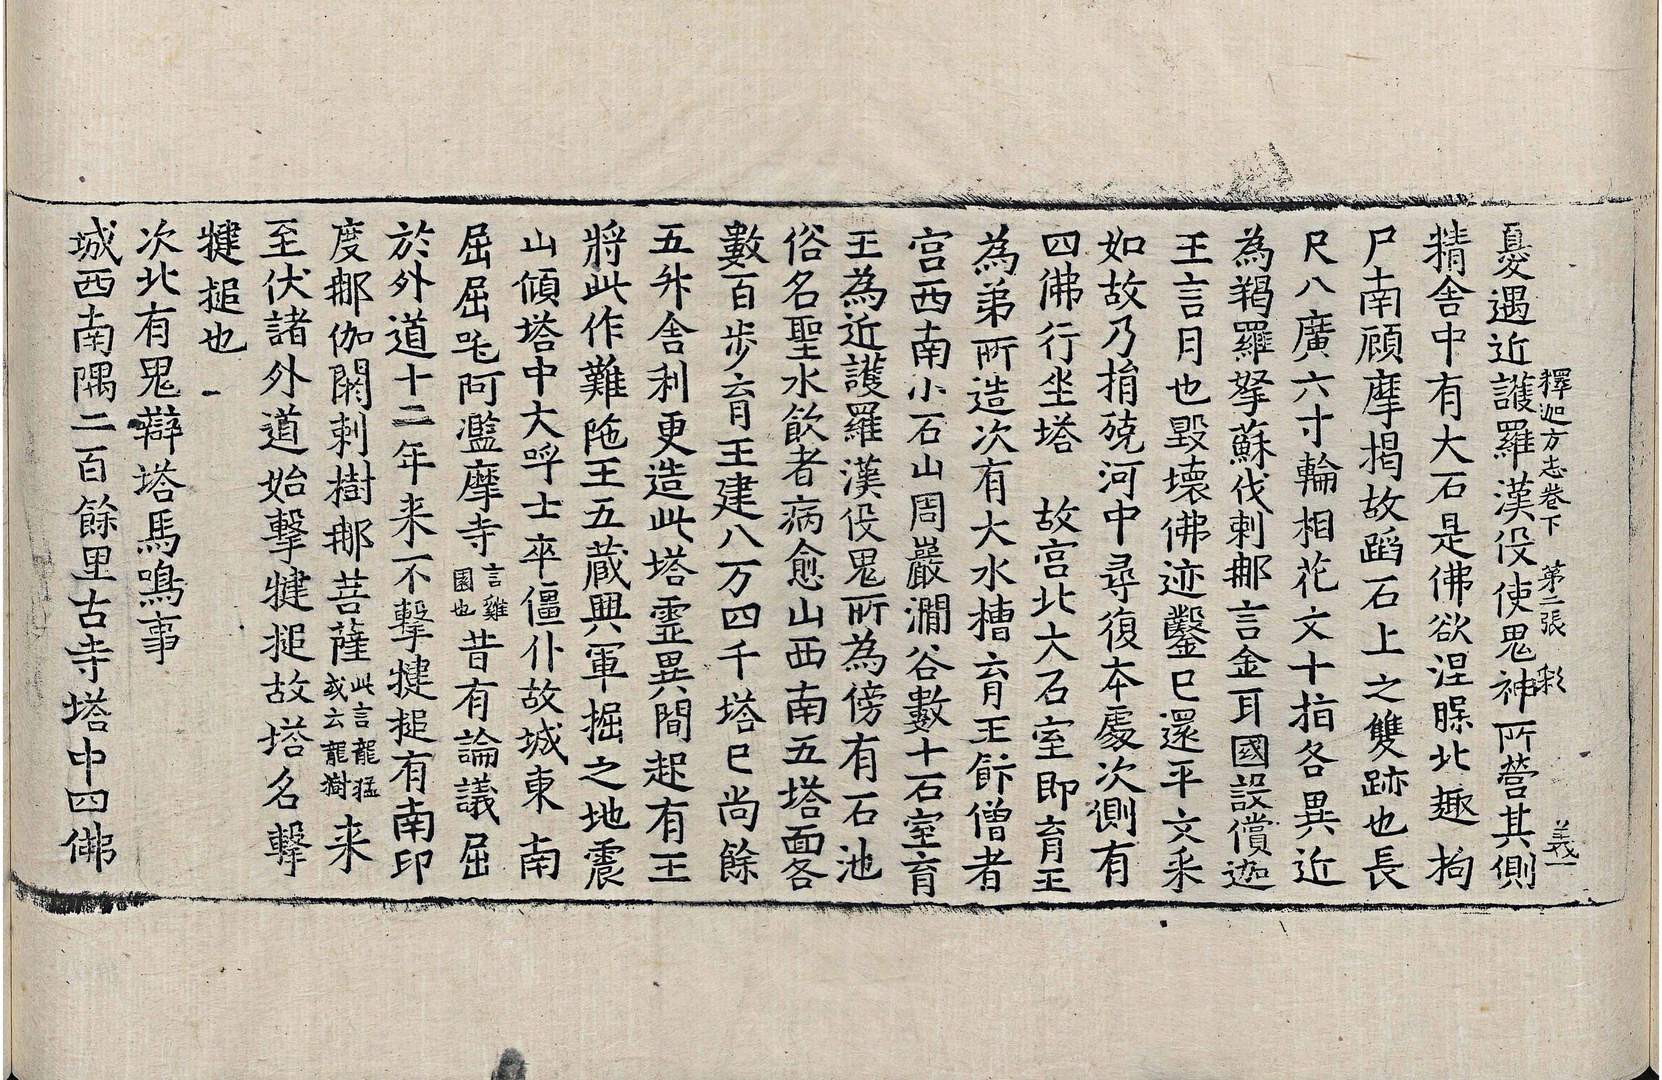 釋迦方志卷下　第二張　彩　義
憂遇近護羅漢役使鬼神所營其側
精舍中有大石是佛欲涅槃北趣拘
尸南顧摩揭故蹈石上之雙跡也長
尺八廣六寸輪相花文十指各異近
為羯羅拏蘇伐剌那言金耳國設賞迦
王言月也毀壞佛迹鑿已還平文采
如故乃捐殑河中尋復本處次側有
四佛行坐塔　故宮北大石室即育王
為弟所造次有大水槽育王飰僧者
宮西南小石山周巖㵎谷數十石室育
王為近護羅漢役鬼所為傍有石池
俗名聖水飲者病愈山西南五塔面各
數百步育王建八万四千塔已尚餘
五升舍利更造此塔靈異間起有王
將此作難陁王五藏興軍掘之地震
山傾塔中大呼士卒僵仆故城東南
屈屈吒阿濫摩寺言雞園也昔有論議屈
於外道十二年来不擊揵搥有南印
度那伽閼剌樹那菩薩此言龍猛或云龍樹来
至伏諸外道始擊揵搥故塔名擊
揵搥也
次北有鬼辯塔馬鳴事
城西南隅二百餘里古寺塔中四佛